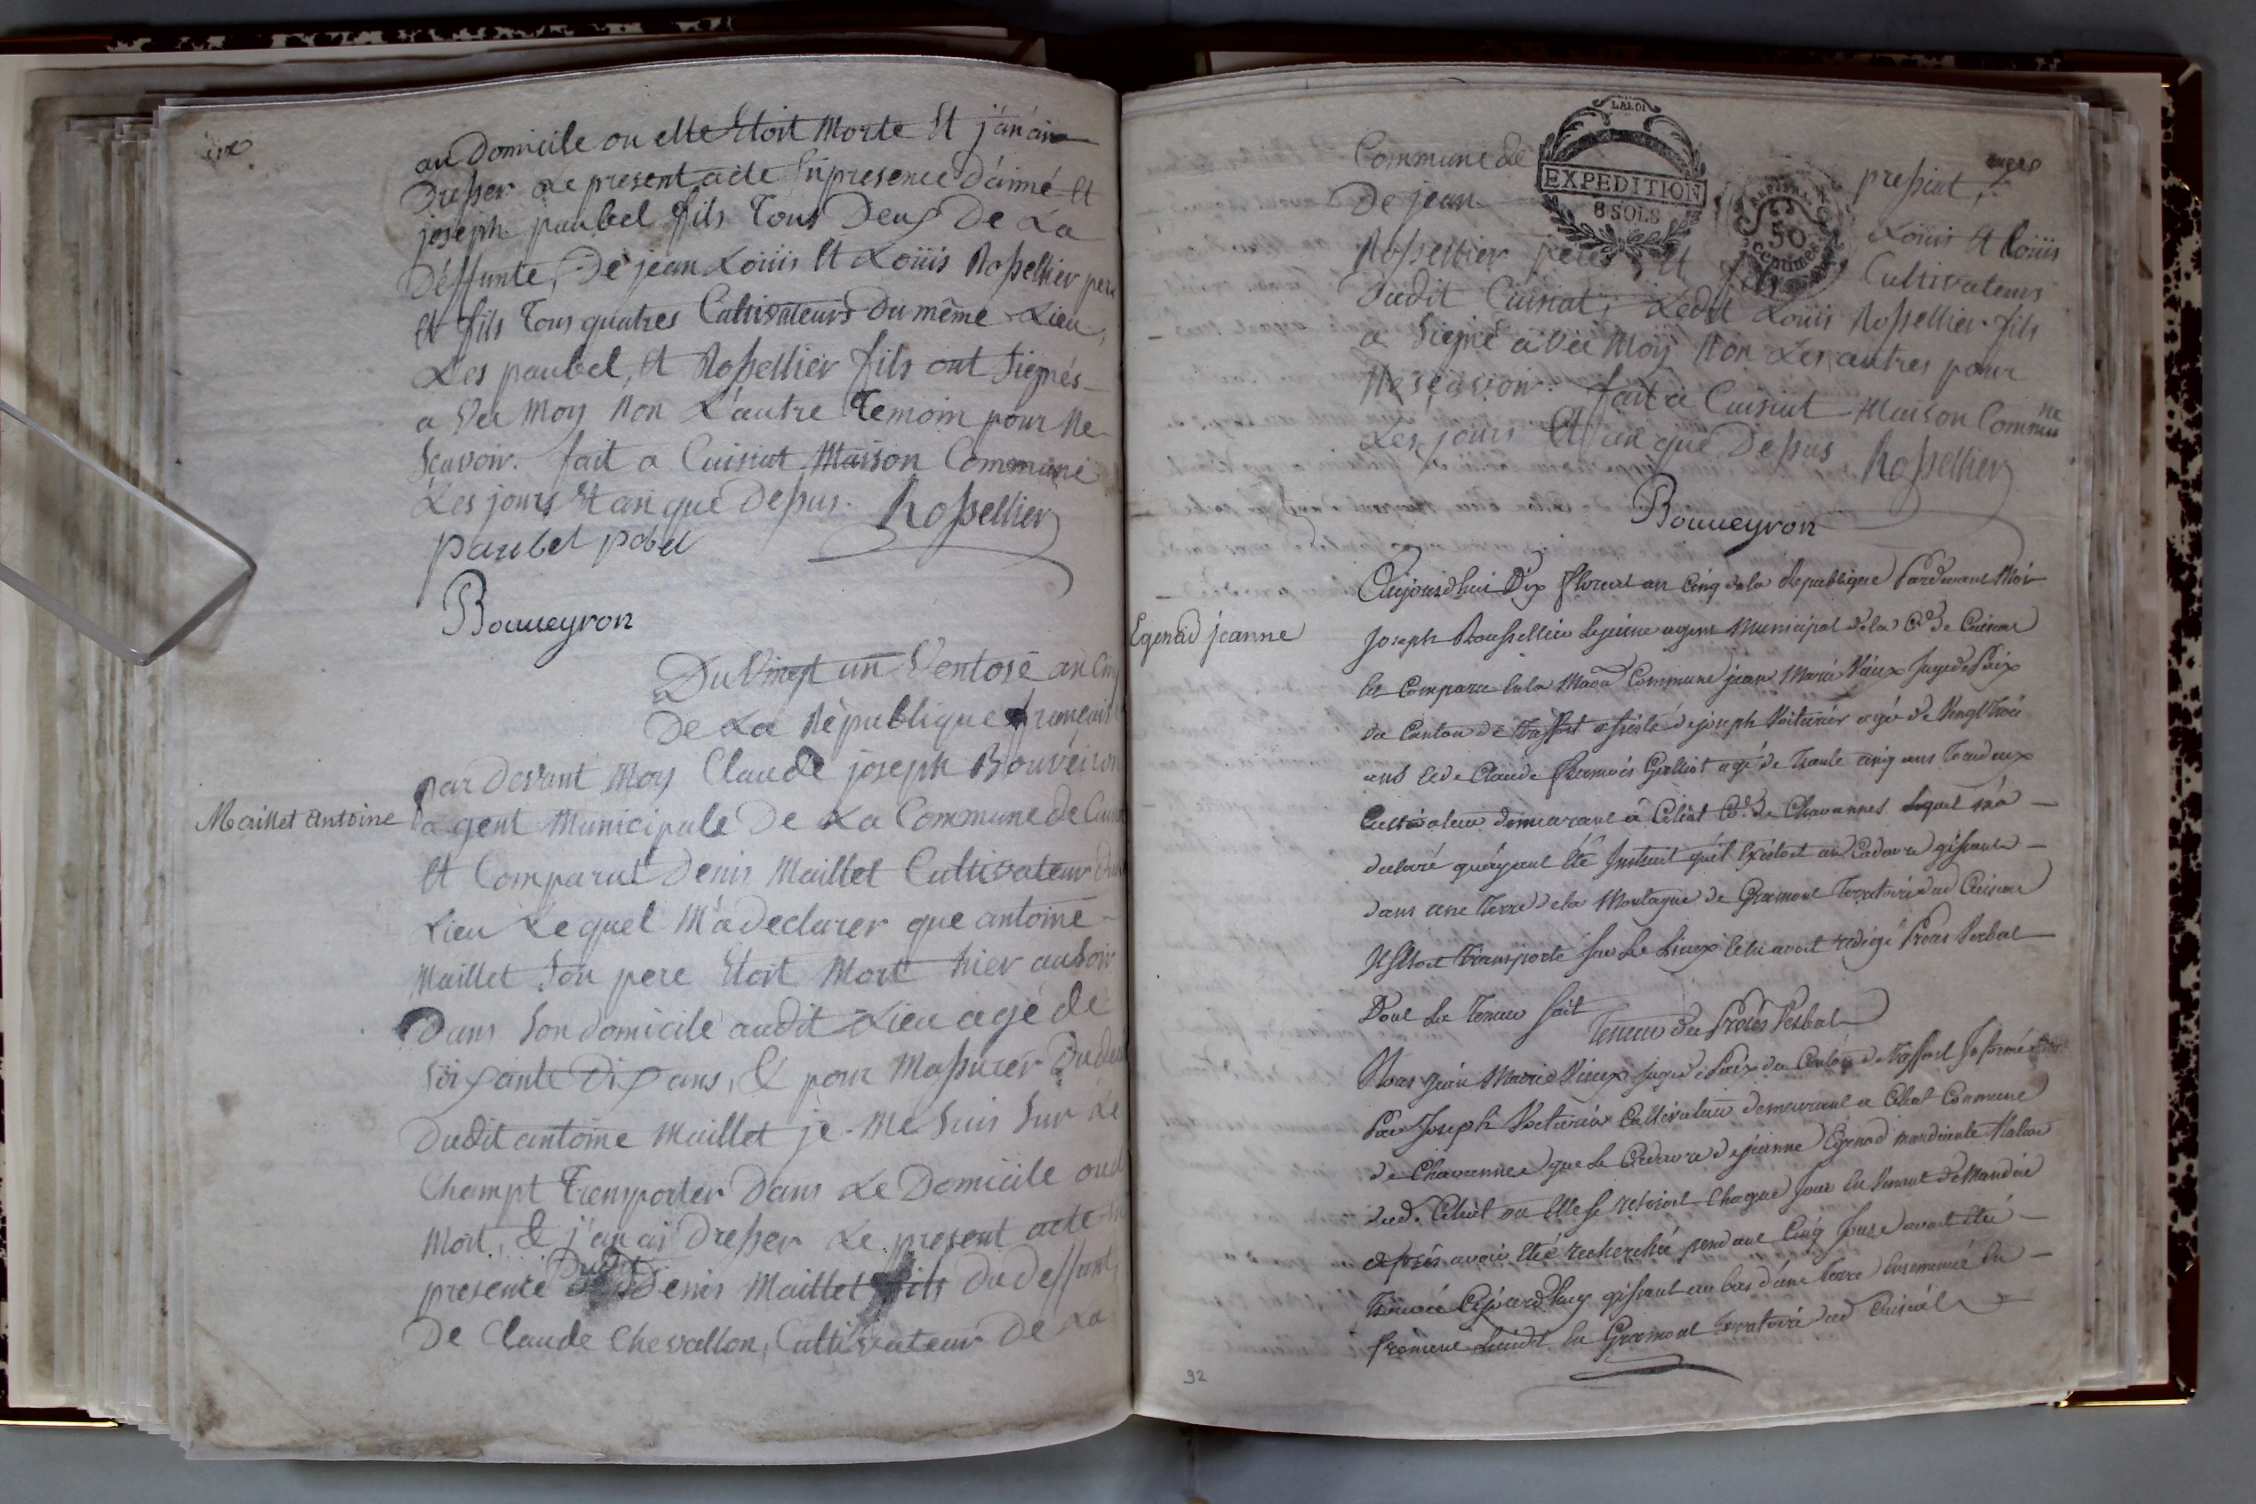 au Domicile ou elle Etoit Morte Et j'an ai
Dresser Le present acte En presence d'aimé Et
joseph paubel fils Tous Deux De La
Déffunte, De jean Loüis Et Loüis Rossellier pere
Et fils Tous quatres Cultivateurs Du même Lieu,
Les paubel, Et Rossellier fils ont Signés
a Vec Moy Non L'autre Temoin pour Ne
Scavoir. fait a Cuisiat Maison Commune
Les jours Et an que Dessus. Rossellier
paubel pobel
Bouueyron
Du Vingt un Ventose an Cinq
De La République français
par devant Moy Claude joseph Bouvéiron
Maillet Antoine
agent Municipale De La Commune de
Et Comparut Denis Maillet Cultivateur
Lieu Lequel M'a declarer que antoine
Maillet Son pere Etoit Mort hier au Soir
Dans Son domicile audit Lieu agé de
Soixante Dix ans, & pour M'assurer
Dudit antoine Maillet je Me Suis Sur Le
Champt Transporter Dans Le Domicile
Mort, & j'an ai Dresser Le present acte
presence Dudit Denis Maillet fils Du deffunt,
De Claude Chevallon, Cultivateur De La
Commune de pressiat,
LA LOI
EXPEDITION
8 SOLS
50
Centimes
De jean Loüis Et Loüis
Rossellier pere Et fils Cultivateurs
Dudit Cuisiat, Ledit Loüis Rossellier fils
a Signé a Vec Moy Non Les autres pour
Ne Scavoir. fait a Cuisiat Maison Commune
Les jours Et an que Dessus Rossellier
Bouueyron
Aujourdhui Dix floreal an Cinq de la Republique Pardevant Moi
Egenod jeanne
Joseph Roussellier Lejeune agent Municipal de la Cne de Cuisiat
Est Comparu En la Maon Commune jean Marie Vieux Juge de Paix
du Canton de Treffort assisté de joseph Voiturier agé de Vingt Trois
ans Et de Claude francois Gralliot agé de Trante cinq ans Tous deux
Cultivateur demeurant a Céliat Cne de Chavannes Lequel m'a
declaré qu'ayant Eté Instruit qu'il Existoit un Cadavre gissant
dans une Terre de la Montagne de Gramont Territoire dud Cuisiat
Il S'Etoit Transporté sur Les Lieux Et En avoit redigé Proces Verbal
Dont La Teneur Suit
Teneur du Procès Verbal
Nous Jean Marie Vieux juge de Paix du Canton de Treffort Informé
Par Joseph Voiturier Cultivateur demeurant a Céliat Commune
de Chavannes que Le Cadavre de jeanne Egenod mandiante Native
dud. Céliat ou Elle se retiroit Chaque Jour En Venant de Mandier
après avoir Eté recherchée pendant Cinq jours avoit Eté
Trouvée aujourd'huy gissant au bas d'une Terre Ensemencée En
froment Lieudit En Gramont Territoire dud Cuisiat
92